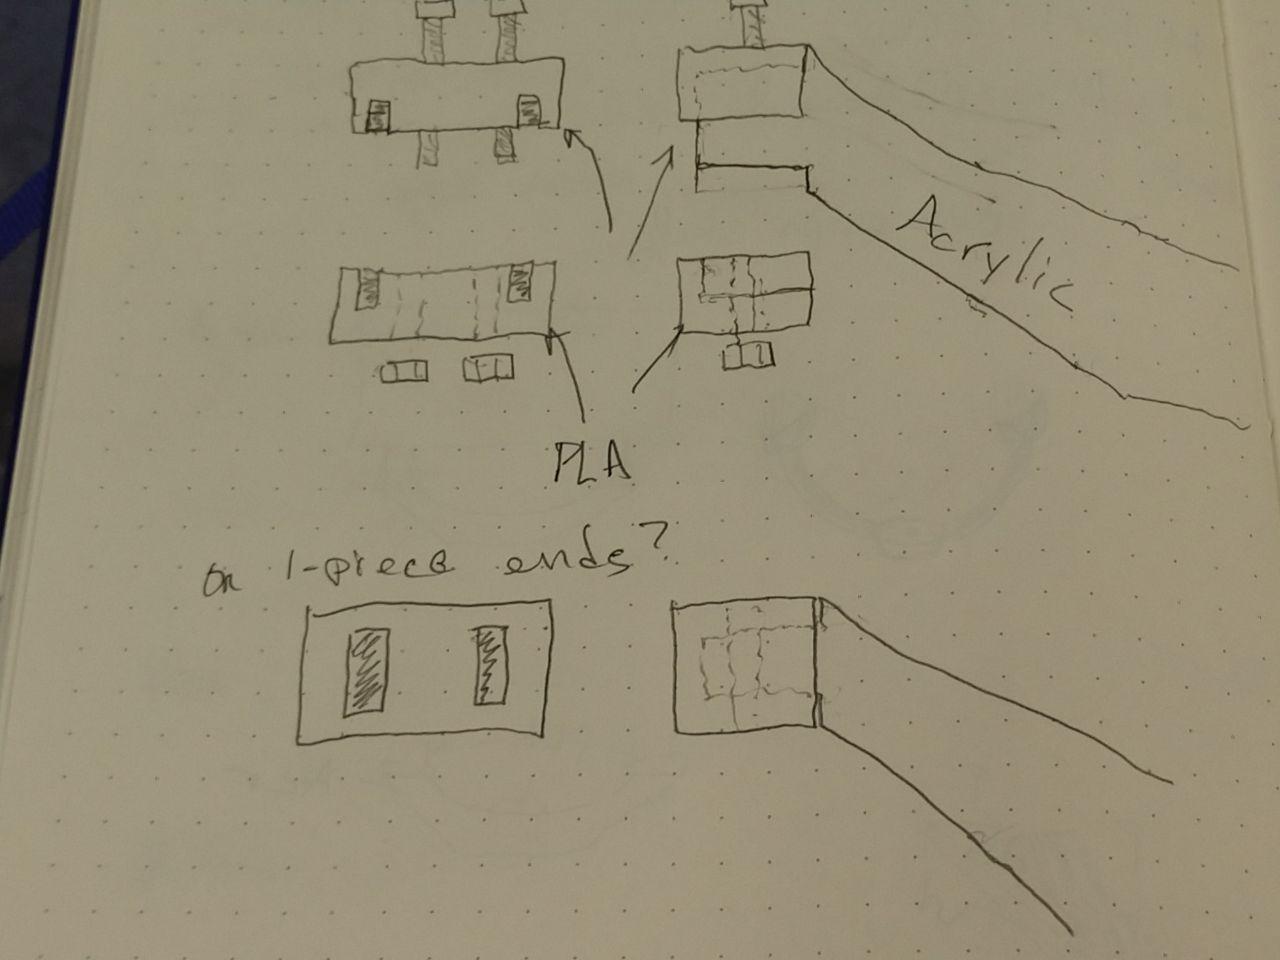 Acrylic
PLA
or 1-piece ends?